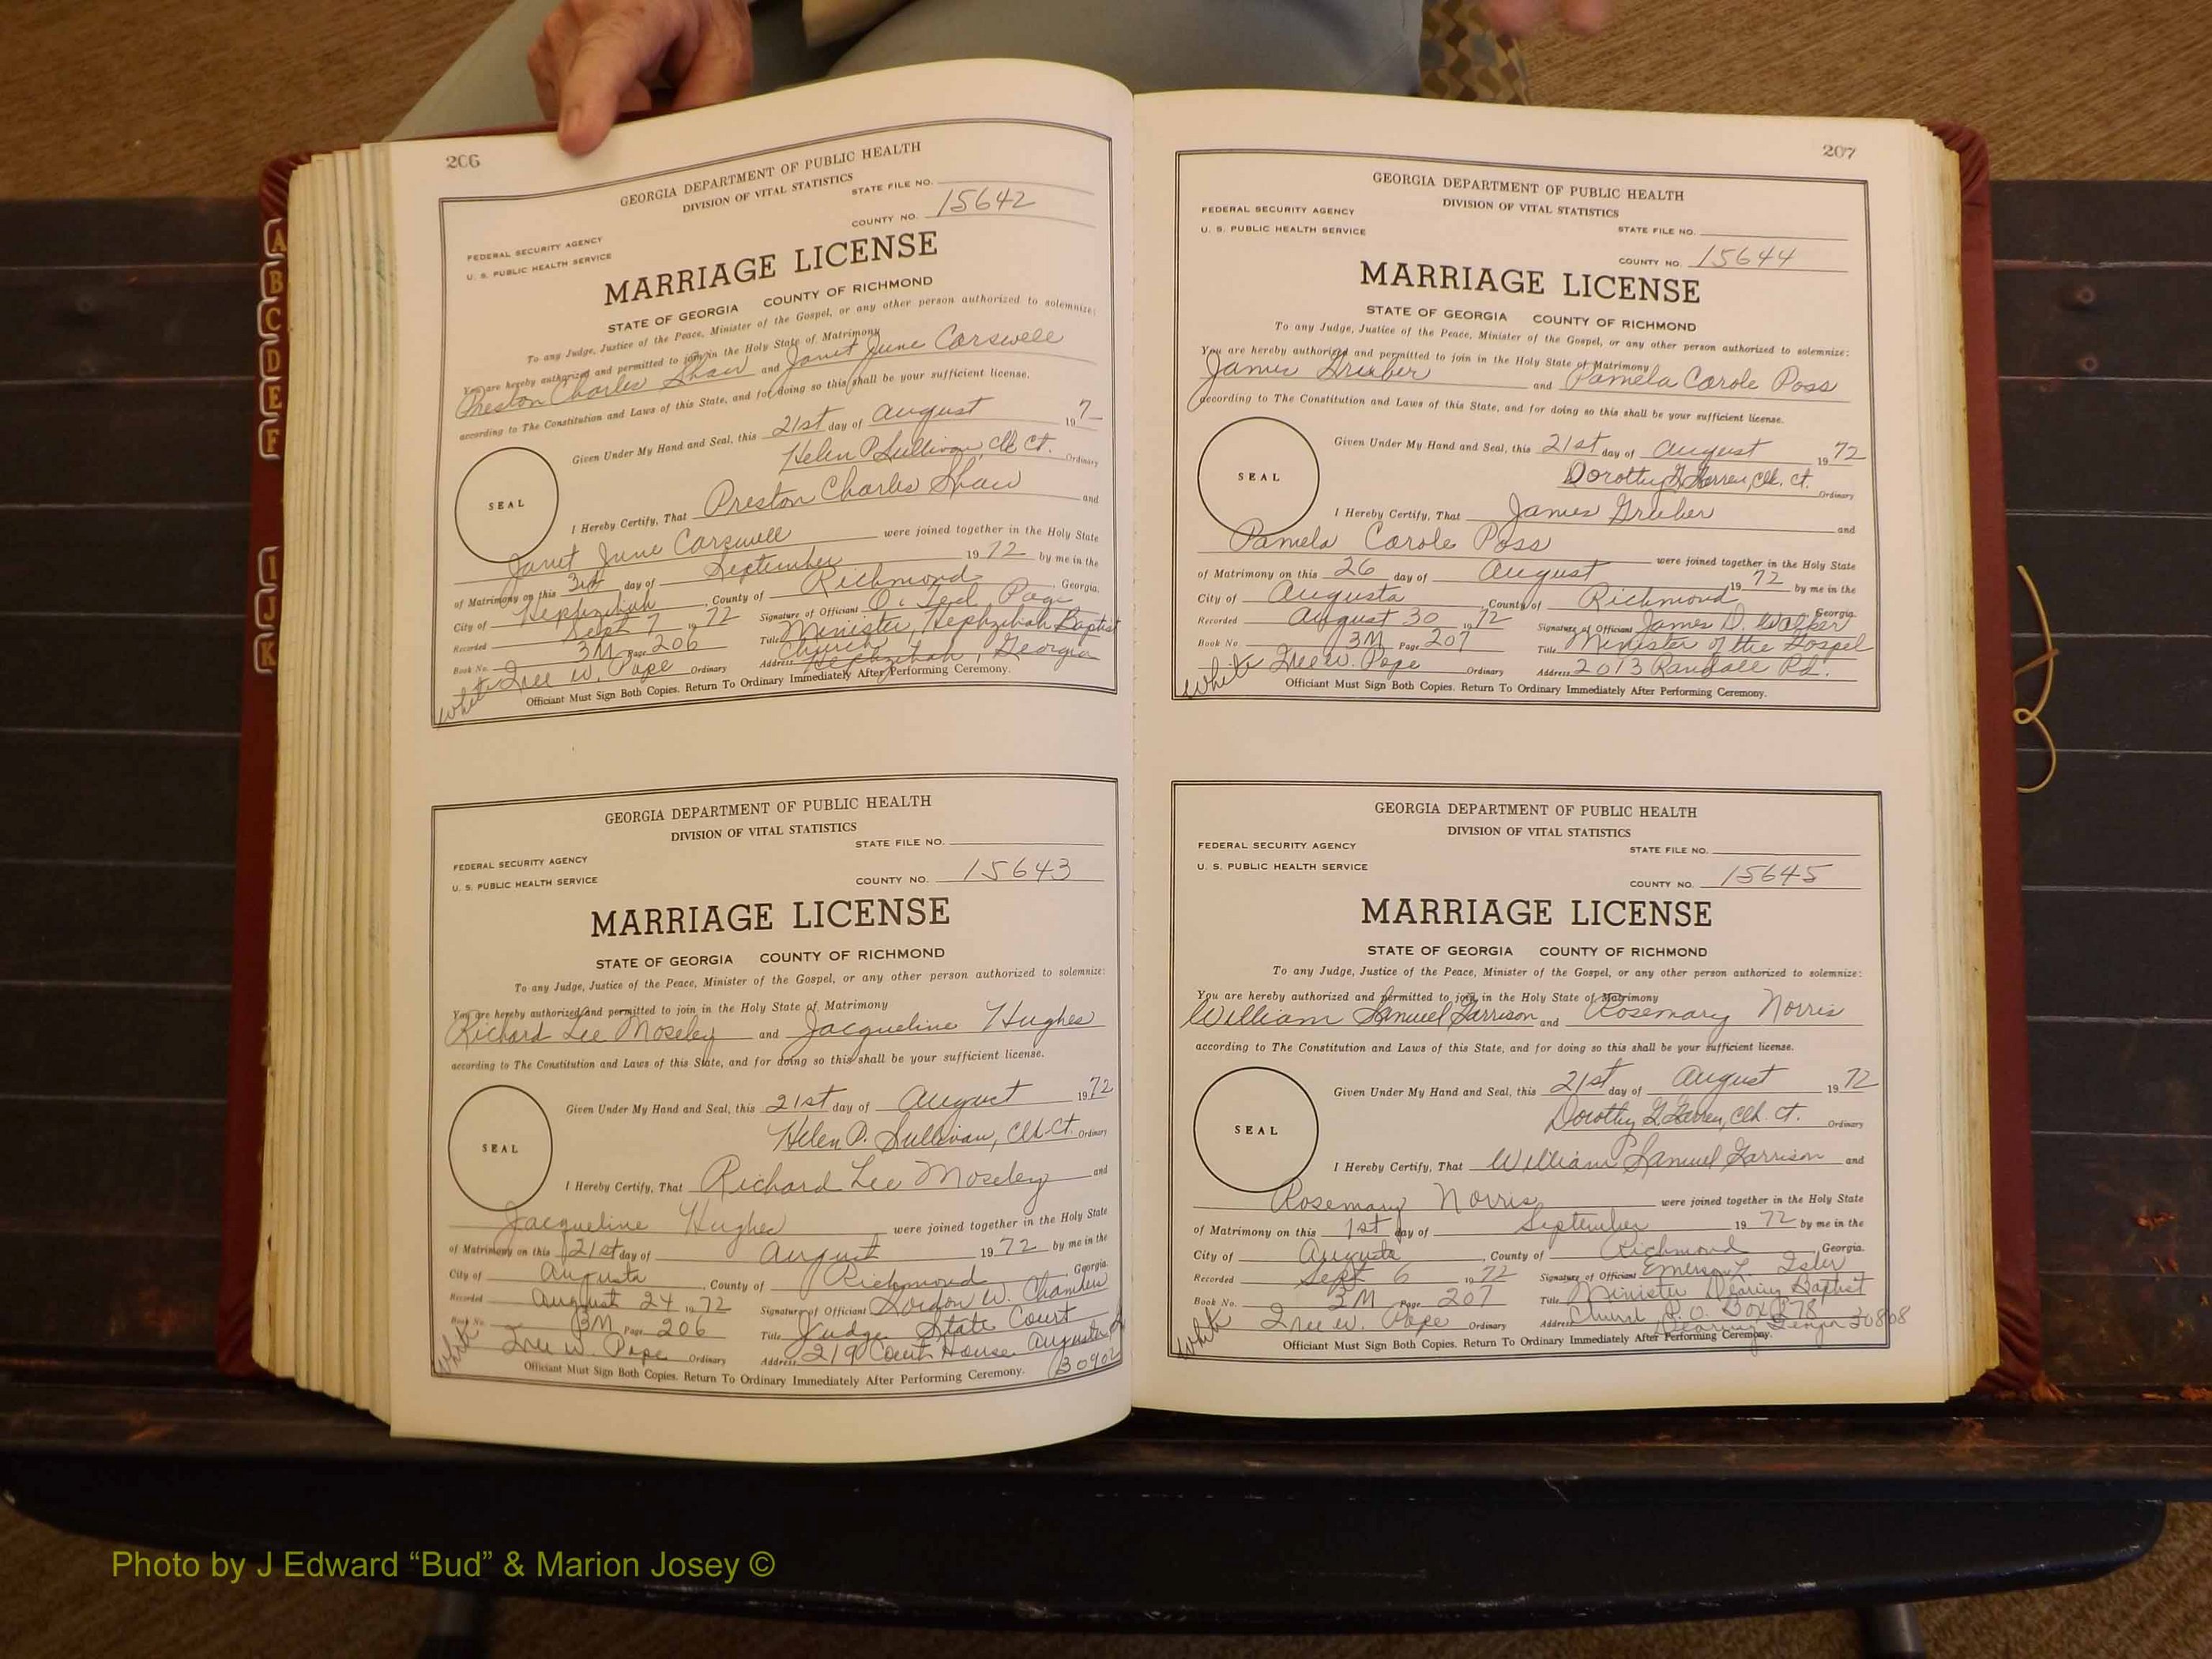 206
GEORGIA DEPARTMENT OF PUBLIC HEALTH
DIVISION OF VITAL STATISTICS
STATE FILE NO.
COUNTY NO. 15642
FEDERAL SECURITY AGENCY
U. S. PUBLIC HEALTH SERVICE
MARRIAGE LICENSE
STATE OF GEORGIA COUNTY OF RICHMOND
To any Judge, Justice of the Peace, Minister of the Gospel, or any other person authorized to solemnize:
You are hereby authorized and permitted to join in the Holy State of Matrimony
Preston Charles Shaw and Janet June Carswell
according to The Constitution and Laws of this State, and for doing so this shall be your sufficient license.
Given Under My Hand and Seal, this 21st day of August 197
Helen P Sullivan, Clk Ct. Ordinary
SEAL
I Hereby Certify, That Preston Charles Shaw and
Janet June Carswell were joined together in the Holy State
of Matrimony on this 3rd day of September 1972 by me in the
City of Hephzibah, County of Richmond, Georgia.
Recorded Sept 7 1972 Signature of Officiant O. Ted Page
Book No. 3M Page 206 Title Minister, Hephzibah Baptist
Church
White W. Pope Ordinary Address Hephzibah, Georgia
Officiant Must Sign Both Copies. Return To Ordinary Immediately After Performing Ceremony.
GEORGIA DEPARTMENT OF PUBLIC HEALTH
DIVISION OF VITAL STATISTICS
STATE FILE NO.
FEDERAL SECURITY AGENCY
U. S. PUBLIC HEALTH SERVICE
COUNTY NO. 15643
MARRIAGE LICENSE
STATE OF GEORGIA COUNTY OF RICHMOND
To any Judge, Justice of the Peace, Minister of the Gospel, or any other person authorized to solemnize:
You are hereby authorized and permitted to join in the Holy State of Matrimony
Richard Lee Moseley and Jacqueline Hughes
according to The Constitution and Laws of this State, and for doing so this shall be your sufficient license.
Given Under My Hand and Seal, this 21st day of August 1972
Helen P. Sullivan, Clk. Ct. Ordinary
SEAL
I Hereby Certify, That Richard Lee Moseley and
Jacqueline Hughes were joined together in the Holy State
of Matrimony on this 21st day of August 1972 by me in the
City of Augusta, County of Richmond, Georgia.
Recorded August 24 1972 Signature of Officiant Gordon W. Chambers
Book No. 3M Page 206 Title Judge State Court
White W. Pope Ordinary Address 219 Court House Augusta
30902
Officiant Must Sign Both Copies. Return To Ordinary Immediately After Performing Ceremony.
207
GEORGIA DEPARTMENT OF PUBLIC HEALTH
DIVISION OF VITAL STATISTICS
FEDERAL SECURITY AGENCY
U. S. PUBLIC HEALTH SERVICE
STATE FILE NO.
COUNTY NO. 15644
MARRIAGE LICENSE
STATE OF GEORGIA COUNTY OF RICHMOND
To any Judge, Justice of the Peace, Minister of the Gospel, or any other person authorized to solemnize:
You are hereby authorized and permitted to join in the Holy State of Matrimony
James Gruber and Pamela Carole Poss
according to The Constitution and Laws of this State, and for doing so this shall be your sufficient license.
Given Under My Hand and Seal, this 21st day of August 1972
Dorothy Clk. Ct. Ordinary
SEAL
I Hereby Certify, That James Gruber and
Pamela Carole Poss were joined together in the Holy State
of Matrimony on this 26 day of August 1972 by me in the
City of Augusta, County of Richmond, Georgia.
Recorded August 30 1972 Signature of Officiant James D. Walker
Book No 3M Page 207 Title Minister of the Gospel
White W. Pope Ordinary Address 2013 Randall Rd.
Officiant Must Sign Both Copies. Return To Ordinary Immediately After Performing Ceremony.
GEORGIA DEPARTMENT OF PUBLIC HEALTH
DIVISION OF VITAL STATISTICS
FEDERAL SECURITY AGENCY
STATE FILE NO.
U. S. PUBLIC HEALTH SERVICE
COUNTY NO. 15645
MARRIAGE LICENSE
STATE OF GEORGIA COUNTY OF RICHMOND
To any Judge, Justice of the Peace, Minister of the Gospel, or any other person authorized to solemnize:
You are hereby authorized and permitted to join in the Holy State of Matrimony
William Samuel Garrison and Rosemary Norris
according to The Constitution and Laws of this State, and for doing so this shall be your sufficient license.
Given Under My Hand and Seal, this 21st day of August 1972
Dorothy Clk. Ct. Ordinary
SEAL
I Hereby Certify, That William Samuel Garrison and
Rosemary Norris were joined together in the Holy State
of Matrimony on this 1st day of September 1972 by me in the
City of Augusta, County of Richmond, Georgia.
Recorded Sept 6 1972 Signature of Officiant Emerson L.
Book No. 3M Page 207 Title Minister Dearing Baptist
White W. Pope Ordinary Address Church P.O. Box 178
Dearing 30808
Officiant Must Sign Both Copies. Return To Ordinary Immediately After Performing Ceremony.
A
B
C
D
E
F
I
J
K
Photo by J Edward “Bud” & Marion Josey ©